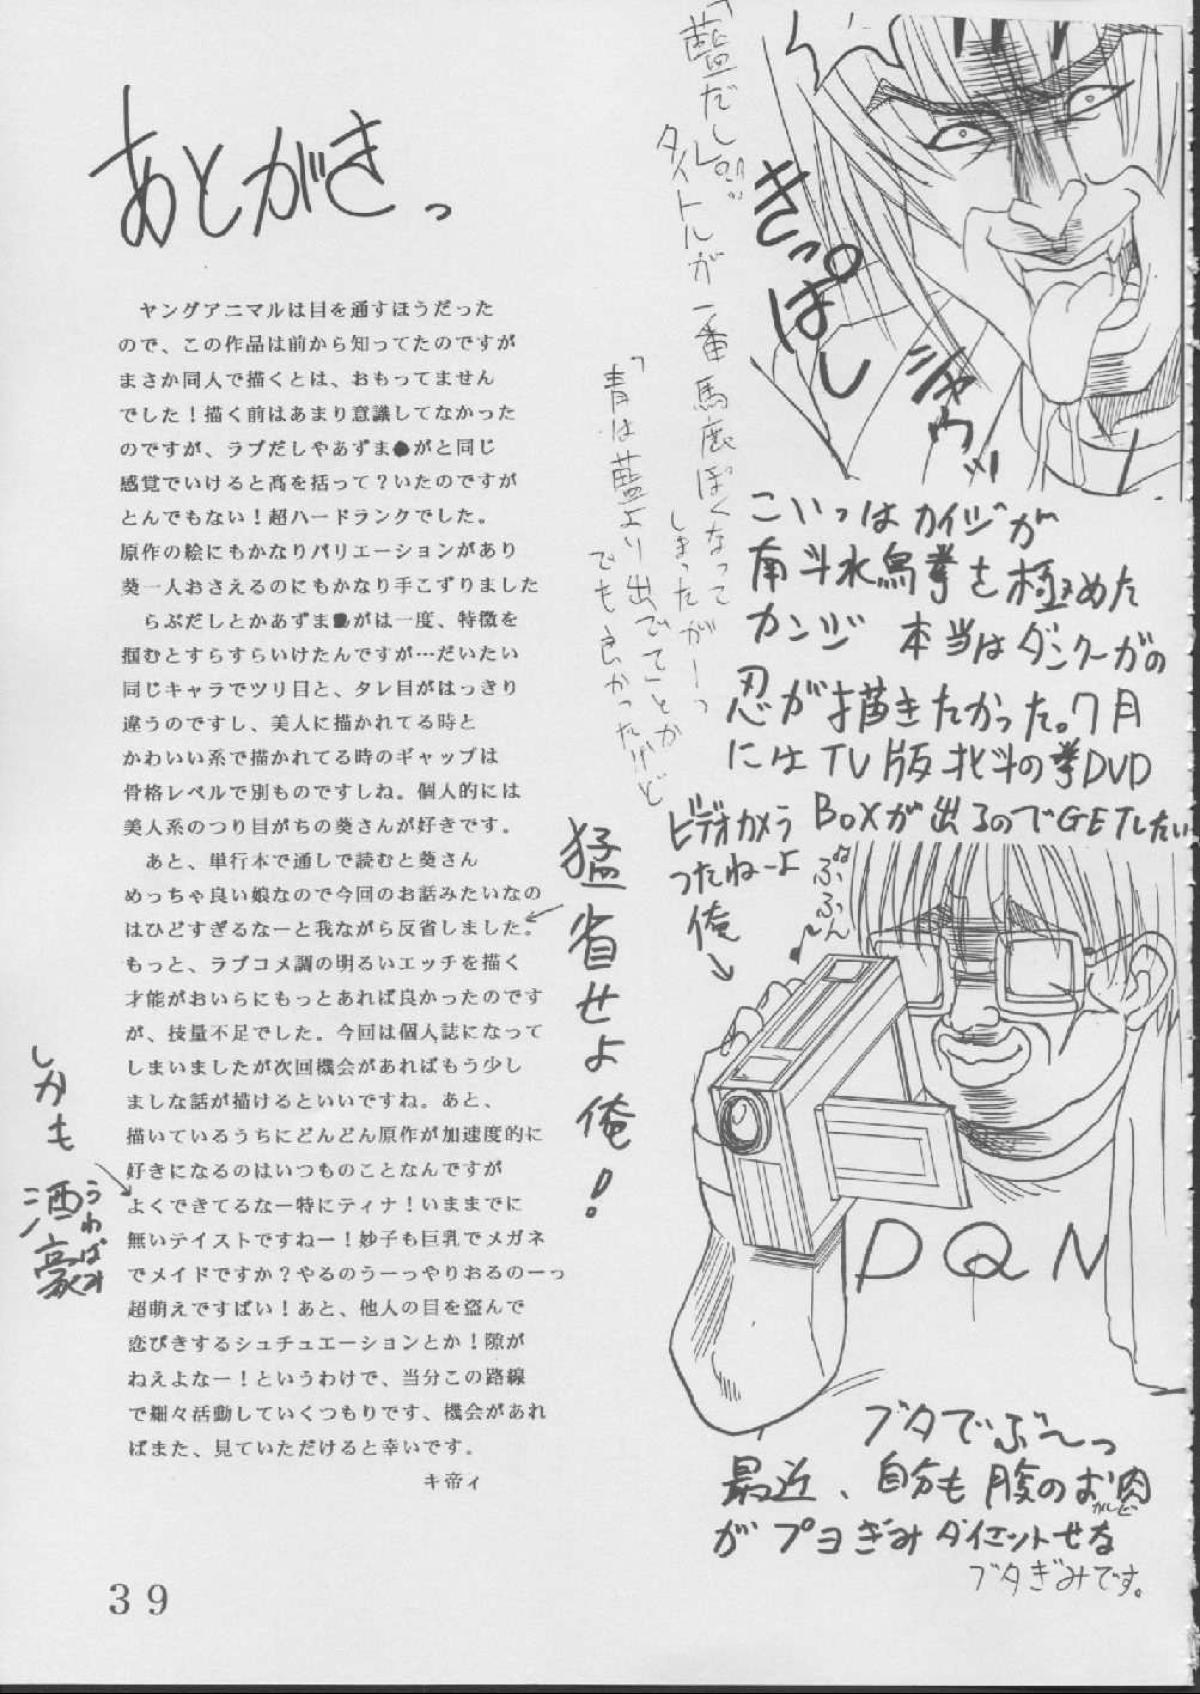 あとがきっ
ヤングアニマルは目を通すほうだった
ので、この作品は前から知ってたのですが
まさか同人で描くとは、おもってません
でした！描く前はあまり意識してなかった
のですが、ラブだしやあずま●がと同じ
感覚でいけると高を括って？いたのですが
とんでもない！超ハードランクでした。
原作の絵にもかなりバリエーションがあり
葵一人おさえるのにもかなり手こずりました
らぶだしとかあずま●がは一度、特徴を
掴むとすらすらいけたんですが…だいたい
同じキャラでツリ目と、タレ目がはっきり
違うのですし、美人に描かれてる時と
かわいい系で描かれてる時のギャップは
骨格レベルで別ものですしね。個人的には
美人系のつり目がちの葵さんが好きです。
あと、単行本で通しで読むと葵さん
めっちゃ良い娘なので今回のお話みたいなの
はひどすぎるなーと我ながら反省しました。
もっと、ラブコメ調の明るいエッチを描く
才能がおいらにもっとあれば良かったのです
が、技量不足でした。今回は個人誌になって
しまいましたが次回機会があればもう少し
ましな話が描けるといいですね。あと、
描いているうちにどんどん原作が加速度的に
好きになるのはいつものことなんですが
よくできてるなー特にティナ！いままでに
無いテイストですねー！妙子も巨乳でメガネ
でメイドですか？やるのうーっやりおるのーっ
超萌えですばい！あと、他人の目を盗んで
恋びきするシュチュエーションとか！隙が
ねえよなー！というわけで、当分この路線
で細々活動していくつもりです、機会があれ
ばまた、見ていただけると幸いです。
キ帝ィ
しかも
酒豪
うわばみ
猛省せよ俺！
「藍だし」
タイトルが一番馬鹿ぽくなって
しまったがーっ
「青は藍より出でて」とか
でも良かったけど
きっぱし
シャウッ
こいつはカイジが
南斗水鳥拳を極めた
カンジ 本当はダンクーガの
忍が描きたかった。7月
にはTV版北斗の拳DVD
BOXが出るのでGETしたい
ビデオカメラ
ったねーよ
俺
ぶふん
DQN
ブタでぶ〜っ
最近、自分も腹のお肉
がプヨぎみダイエットせな
ブタぎみです。
39